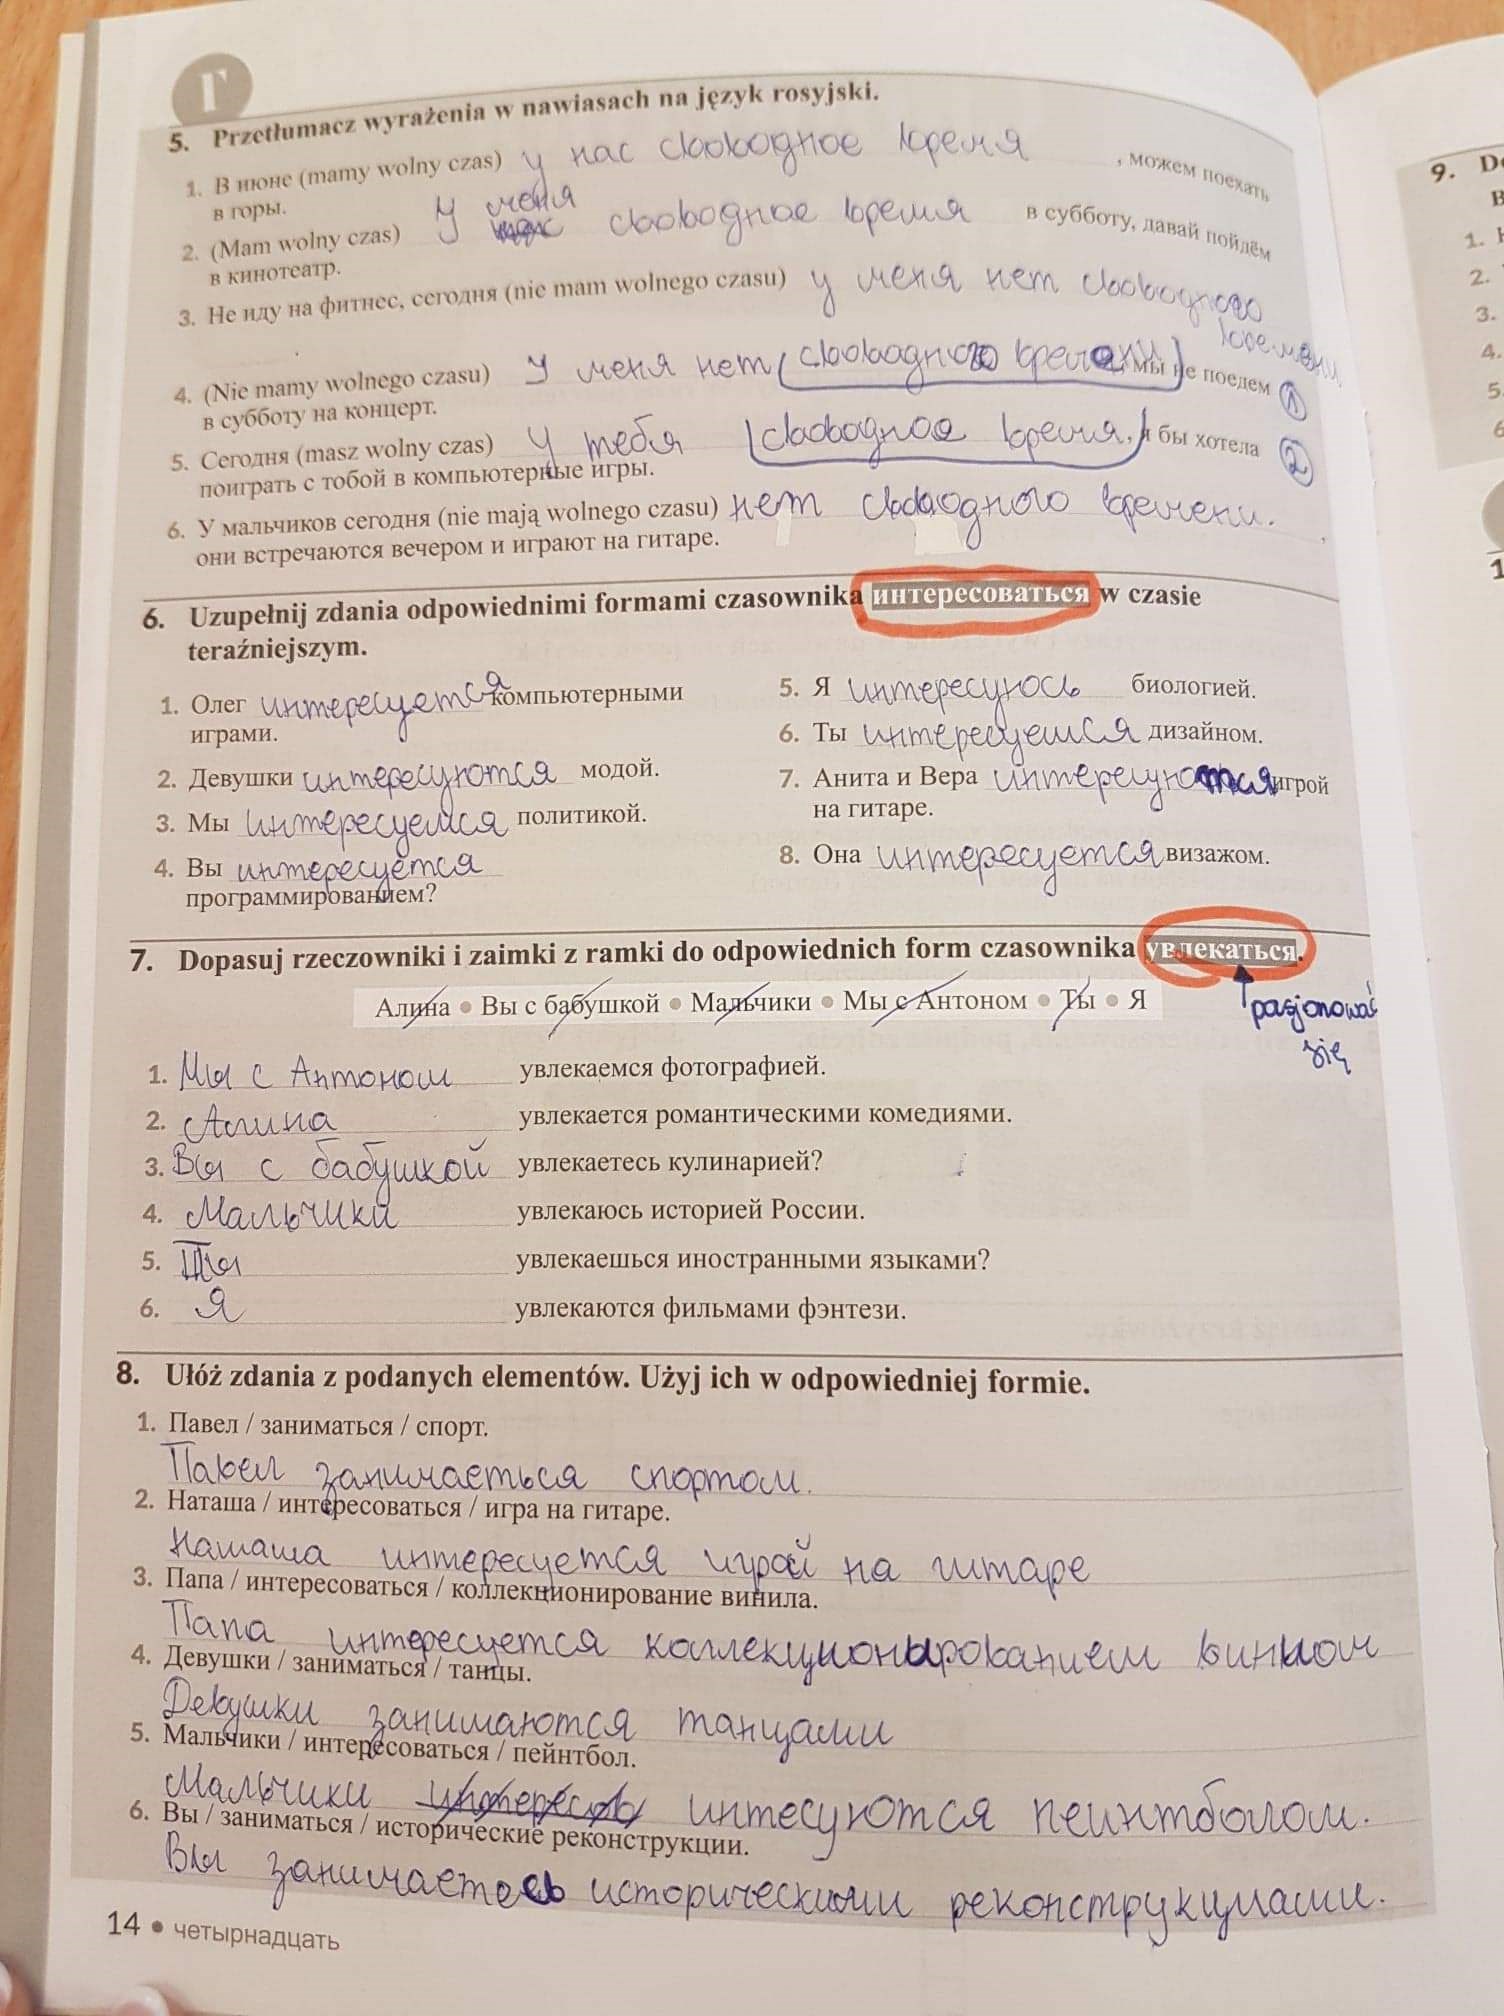 Г
5. Przetłumacz wyrażenia w nawiasach na język rosyjski.
1. В июне (mamy wolny czas) у нас свободное время , можем поехать
в горы.
2. (Mam wolny czas) У меня свободное время в субботу, давай пойдём
в кинотеатр.
3. Не иду на фитнес, сегодня (nie mam wolnego czasu) у меня нет свободного
времени
4. (Nie mamy wolnego czasu) У меня нет (свободного времени) мы не поедем 1
в субботу на концерт.
5. Сегодня (masz wolny czas) У тебя (свободное время, я бы хотела 2
поиграть с тобой в компьютерные игры.
6. У мальчиков сегодня (nie mają wolnego czasu) нет свободного времени.
они встречаются вечером и играют на гитаре.
6. Uzupełnij zdania odpowiednimi formami czasownika интересоваться w czasie
teraźniejszym.
1. Олег интересуется компьютерными
играми.
2. Девушки интересуются модой.
3. Мы интересуемся политикой.
4. Вы интересуется
программированием?
5. Я интересуюсь биологией.
6. Ты интересуешся дизайном.
7. Анита и Вера интересуются игрой
на гитаре.
8. Она интересуется визажом.
7. Dopasuj rzeczowniki i zaimki z ramki do odpowiednich form czasownika увлекаться.
Алина • Вы с бабушкой • Мальчики • Мы с Антоном • Ты • Я
pasjonować
się
1. Мы с Антоном увлекаемся фотографией.
2. Алина увлекается романтическими комедиями.
3. Вы с бабушкой увлекаетесь кулинарией?
4. Мальчики увлекаюсь историей России.
5. Ты увлекаешься иностранными языками?
6. Я увлекаются фильмами фэнтези.
8. Ułóż zdania z podanych elementów. Użyj ich w odpowiedniej formie.
1. Павел / заниматься / спорт.
Павел занимаеться спортом.
2. Наташа / интересоваться / игра на гитаре.
Наташа интересуется игрой на гитаре
3. Папа / интересоваться / коллекционирование винила.
Папа интересуется коллекционированием винилом
4. Девушки / заниматься / танцы.
Девушки занимаются танцами
5. Мальчики / интересоваться / пейнтбол.
Мальчики интесуются пеинтболом.
6. Вы / заниматься / исторические реконструкции.
Вы занимаетесь историческими реконструкциами.
14 • четырнадцать
9. D
В
1.
2.
3.
4.
5.
6
1